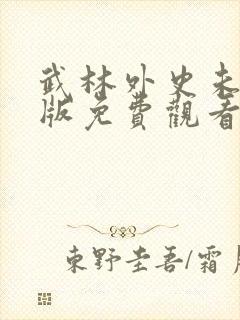 武林外史未
版免費觀看
東野圭吾/霜月